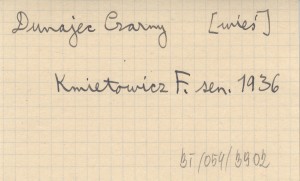 Dunajec Czarny [wieś]
Kmietowicz F. sen. 1936
BI/054/3902